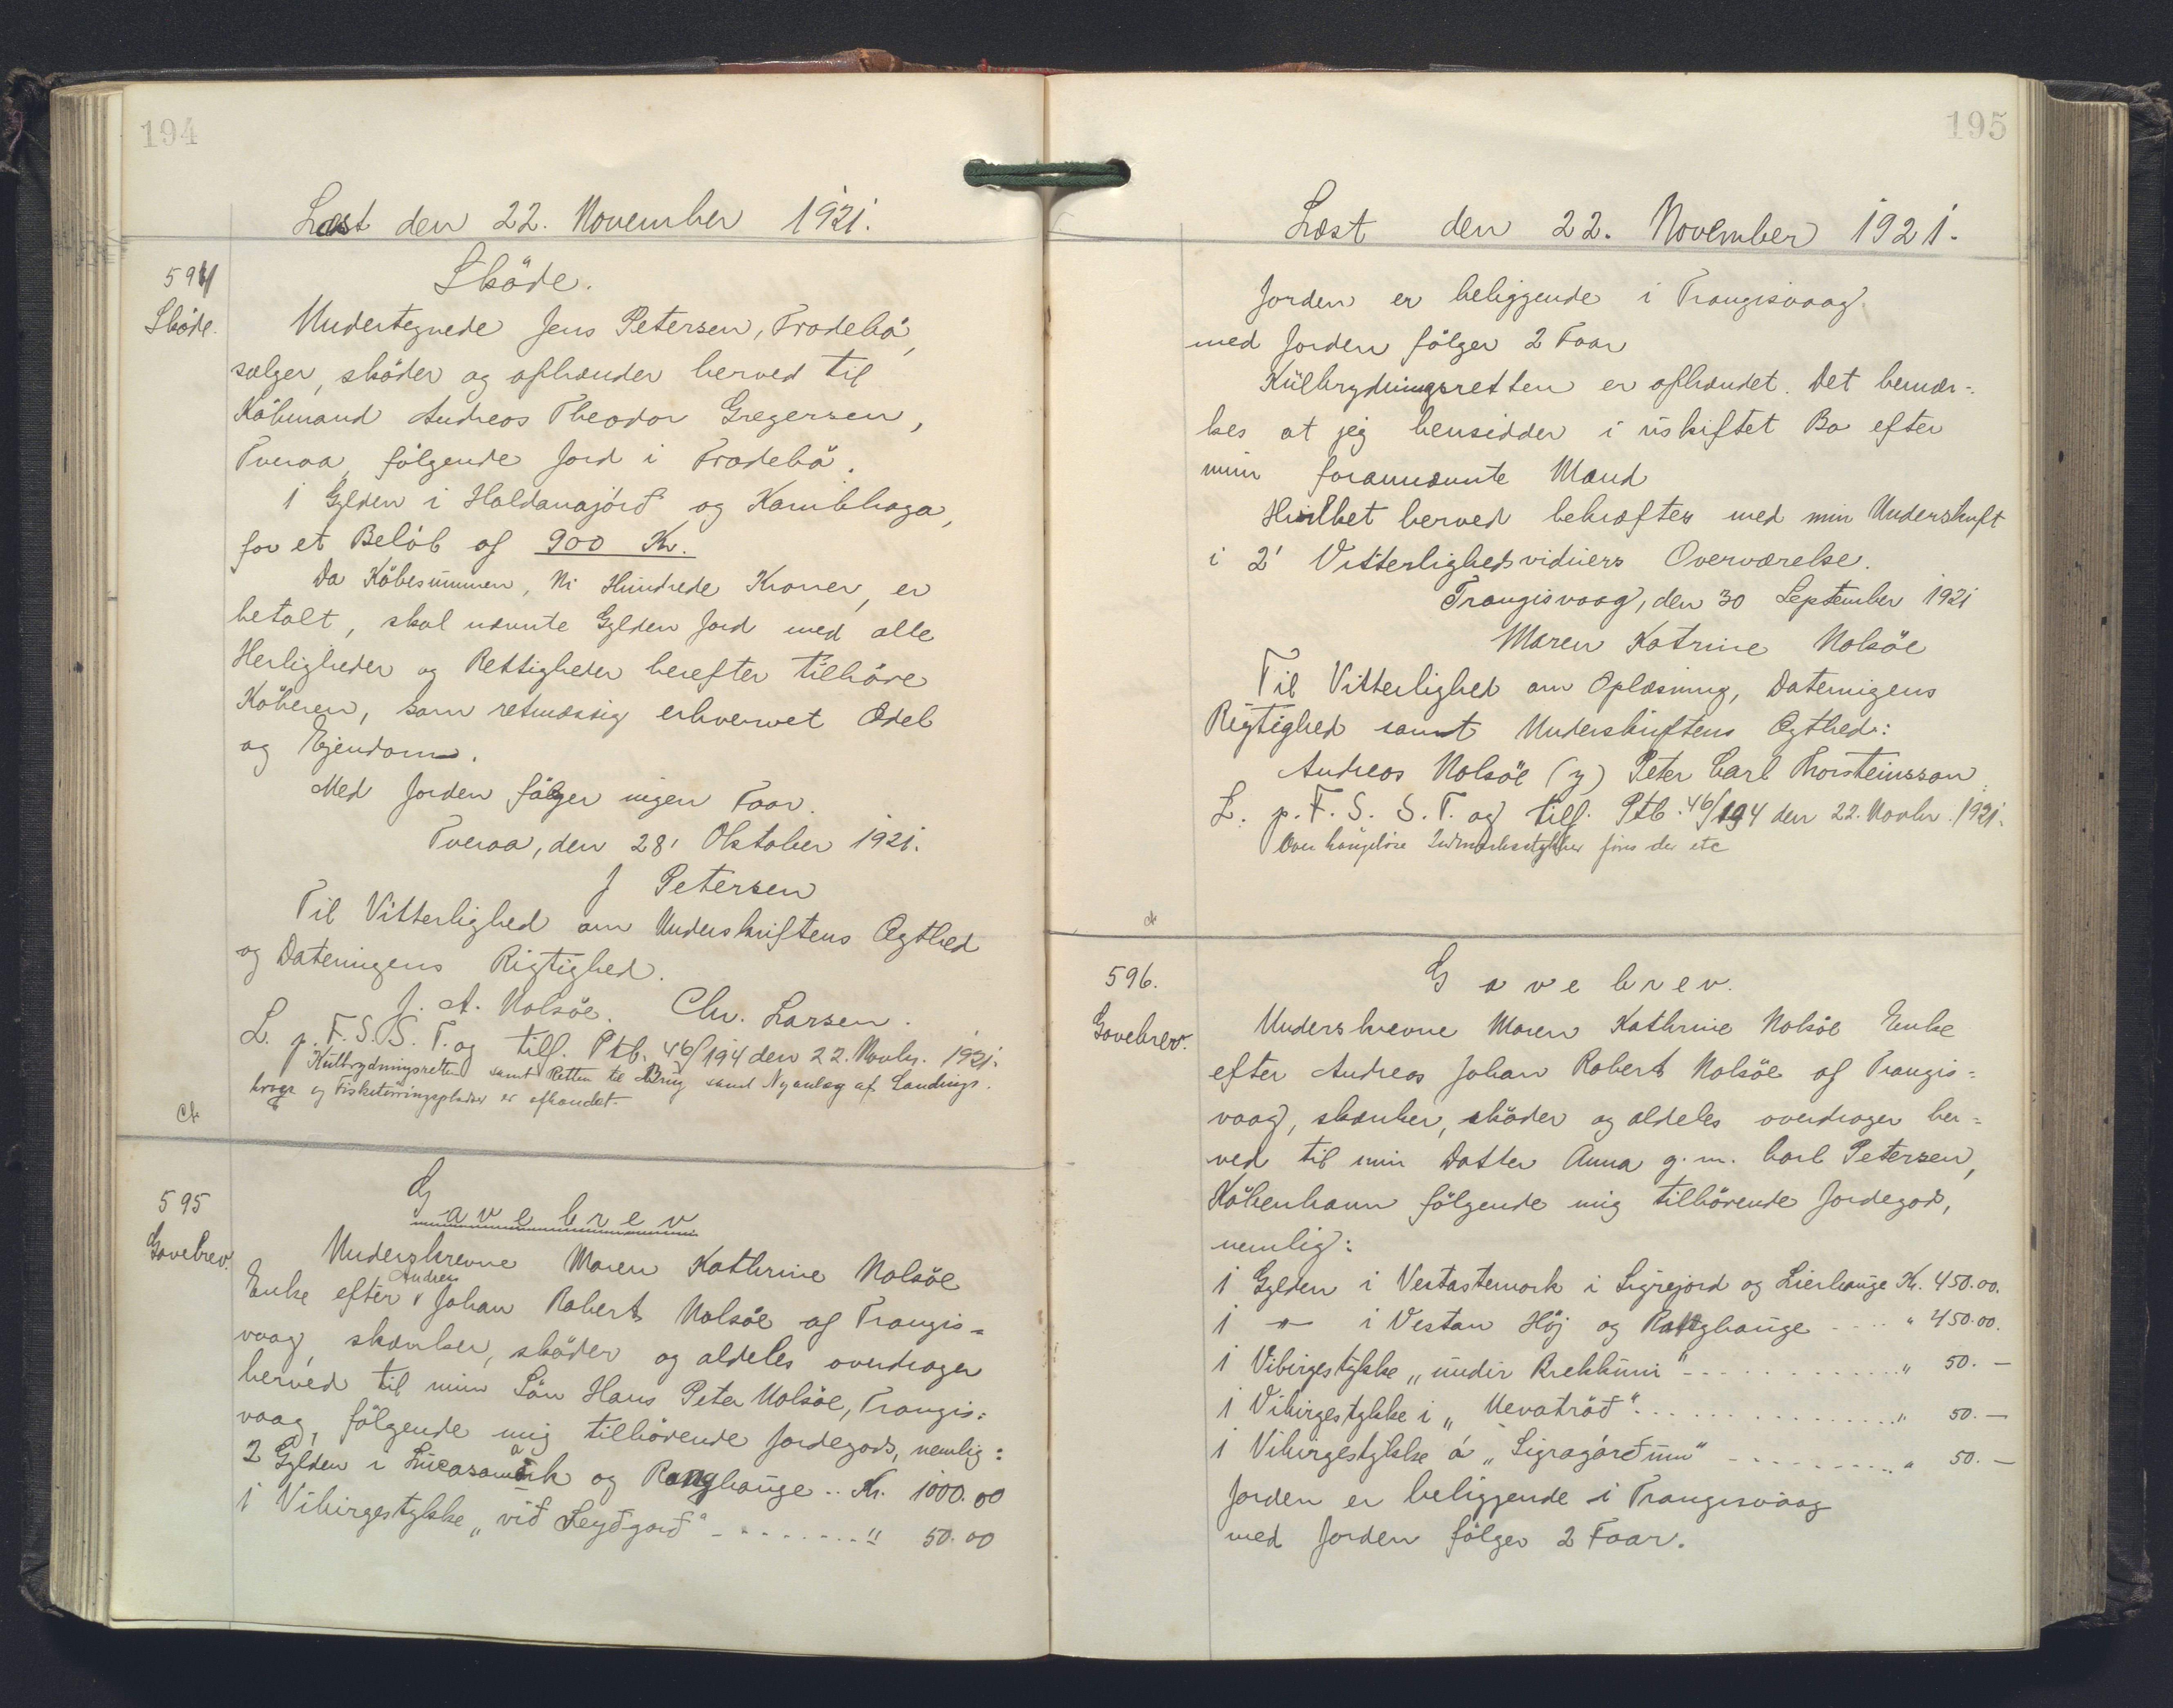 194
Læst den 22. November 1921.
594
Sköde.
Sköde.
Undertegnede Jens Petersen, Frodebö,
sælger, sköder og afhænder herved til
Köbmand Andreas Theodor Gregersen,
Tveraa, fölgende Jord i Frodebö.
1 Gylden i Haldanajörð og Kambhaga,
for et Belöb af 900 Kr.
Da Köbesummen, Ni Hundrede Kroner, er
betalt, skal nævnte Gylden Jord med alle
Herligheder og Rettigheder herefter tilhöre
Köberen, som retmæssig erhvervet Odel
og Ejendom.
Med Jorden fölger ingen Faar.
Tveraa, den 28' Oktober 1921.
J Petersen
Til Vitterlighed om Underskriftens Ægthed
og Dateringens Rigtighed.
J. A. Nolsöe. Chr. Larsen.
L. p. F. S. S. T. og tilf. Ptb. 46/194 den 22. Novbr. 1921.
Kulbrydningsretten samt Retten til Brug samt Nyanlæg af Landings-
kroge og Fisketörringspladser er afhændet.
595
Gavebrev.
Gavebrev
Underskrevne Maren Kathrine Nolsöe
Enke efter Andreas Johan Robert Nolsöe af Trangis=
vaag, skænker, sköder og aldeles overdrager
herved til min Sön Hans Peter Nolsöe, Trangis=
vaag, fölgende mig tilhörende Jordegods, nemlig:
2 Gylden i Lucasamørk og Ranghauge .. Kr. 1000.00
1 Vibirgestykke „við Leyðgarð" - - - - - - - " 50.00
195
Læst den 22. November 1921.
Jorden er beliggende i Trangisvaag
med Jorden fölger 2 Faar
Kulbrydningsretten er afhændet. Det bemær=
kes at jeg hensidder i uskiftet Bo efter
min forannævnte Mand
Hvilket herved bekræftes med min Underskrift
i 2' Vitterlighedsvidners Overværelse.
Trangisvaag, den 30 September 1921
Maren Katrine Nolsöe
Til Vitterlighed om Oplæsning, Dateringens
Rigtighed samt Underskriftens Ægthed:
Andreas Nolsöe (y) Peter Carl Thorsteinsson
L. p. F. S. S. T. og tilf. Ptb. 46/194 den 22. Novbr. 1921.
Over haugelöse Indmarksstykker föres der etc
596.
Gavebrev.
Gavebrev.
Underskrevne Maren Kathrine Nolsöe Enke
efter Andreas Johan Robert Nolsöe af Trangis=
vaag, skænker, sköder og aldeles overdrager her=
ved til min Datter Anna g. m. Carl Petersen,
Köbenhavn fölgende mig tilhörende Jordegods,
nemlig:
1 Gylden i Vestastemork i Sigrejord og Lierhauge Kr. 450.00.
1 -"- i Vestan Höj og Ranghauge - - - " 450.00.
1 Vibirgestykke „undir Brekkuni" - - - - - - - " 50. —
1 Vibirgestykke i „Nevatröð" - - - - - - - " 50. —
1 Vibirgestykke á „Sigragárðinum" - - - - - - - " 50. —
Jorden er beliggende i Trangisvaag
med Jorden fölger 2 Faar.